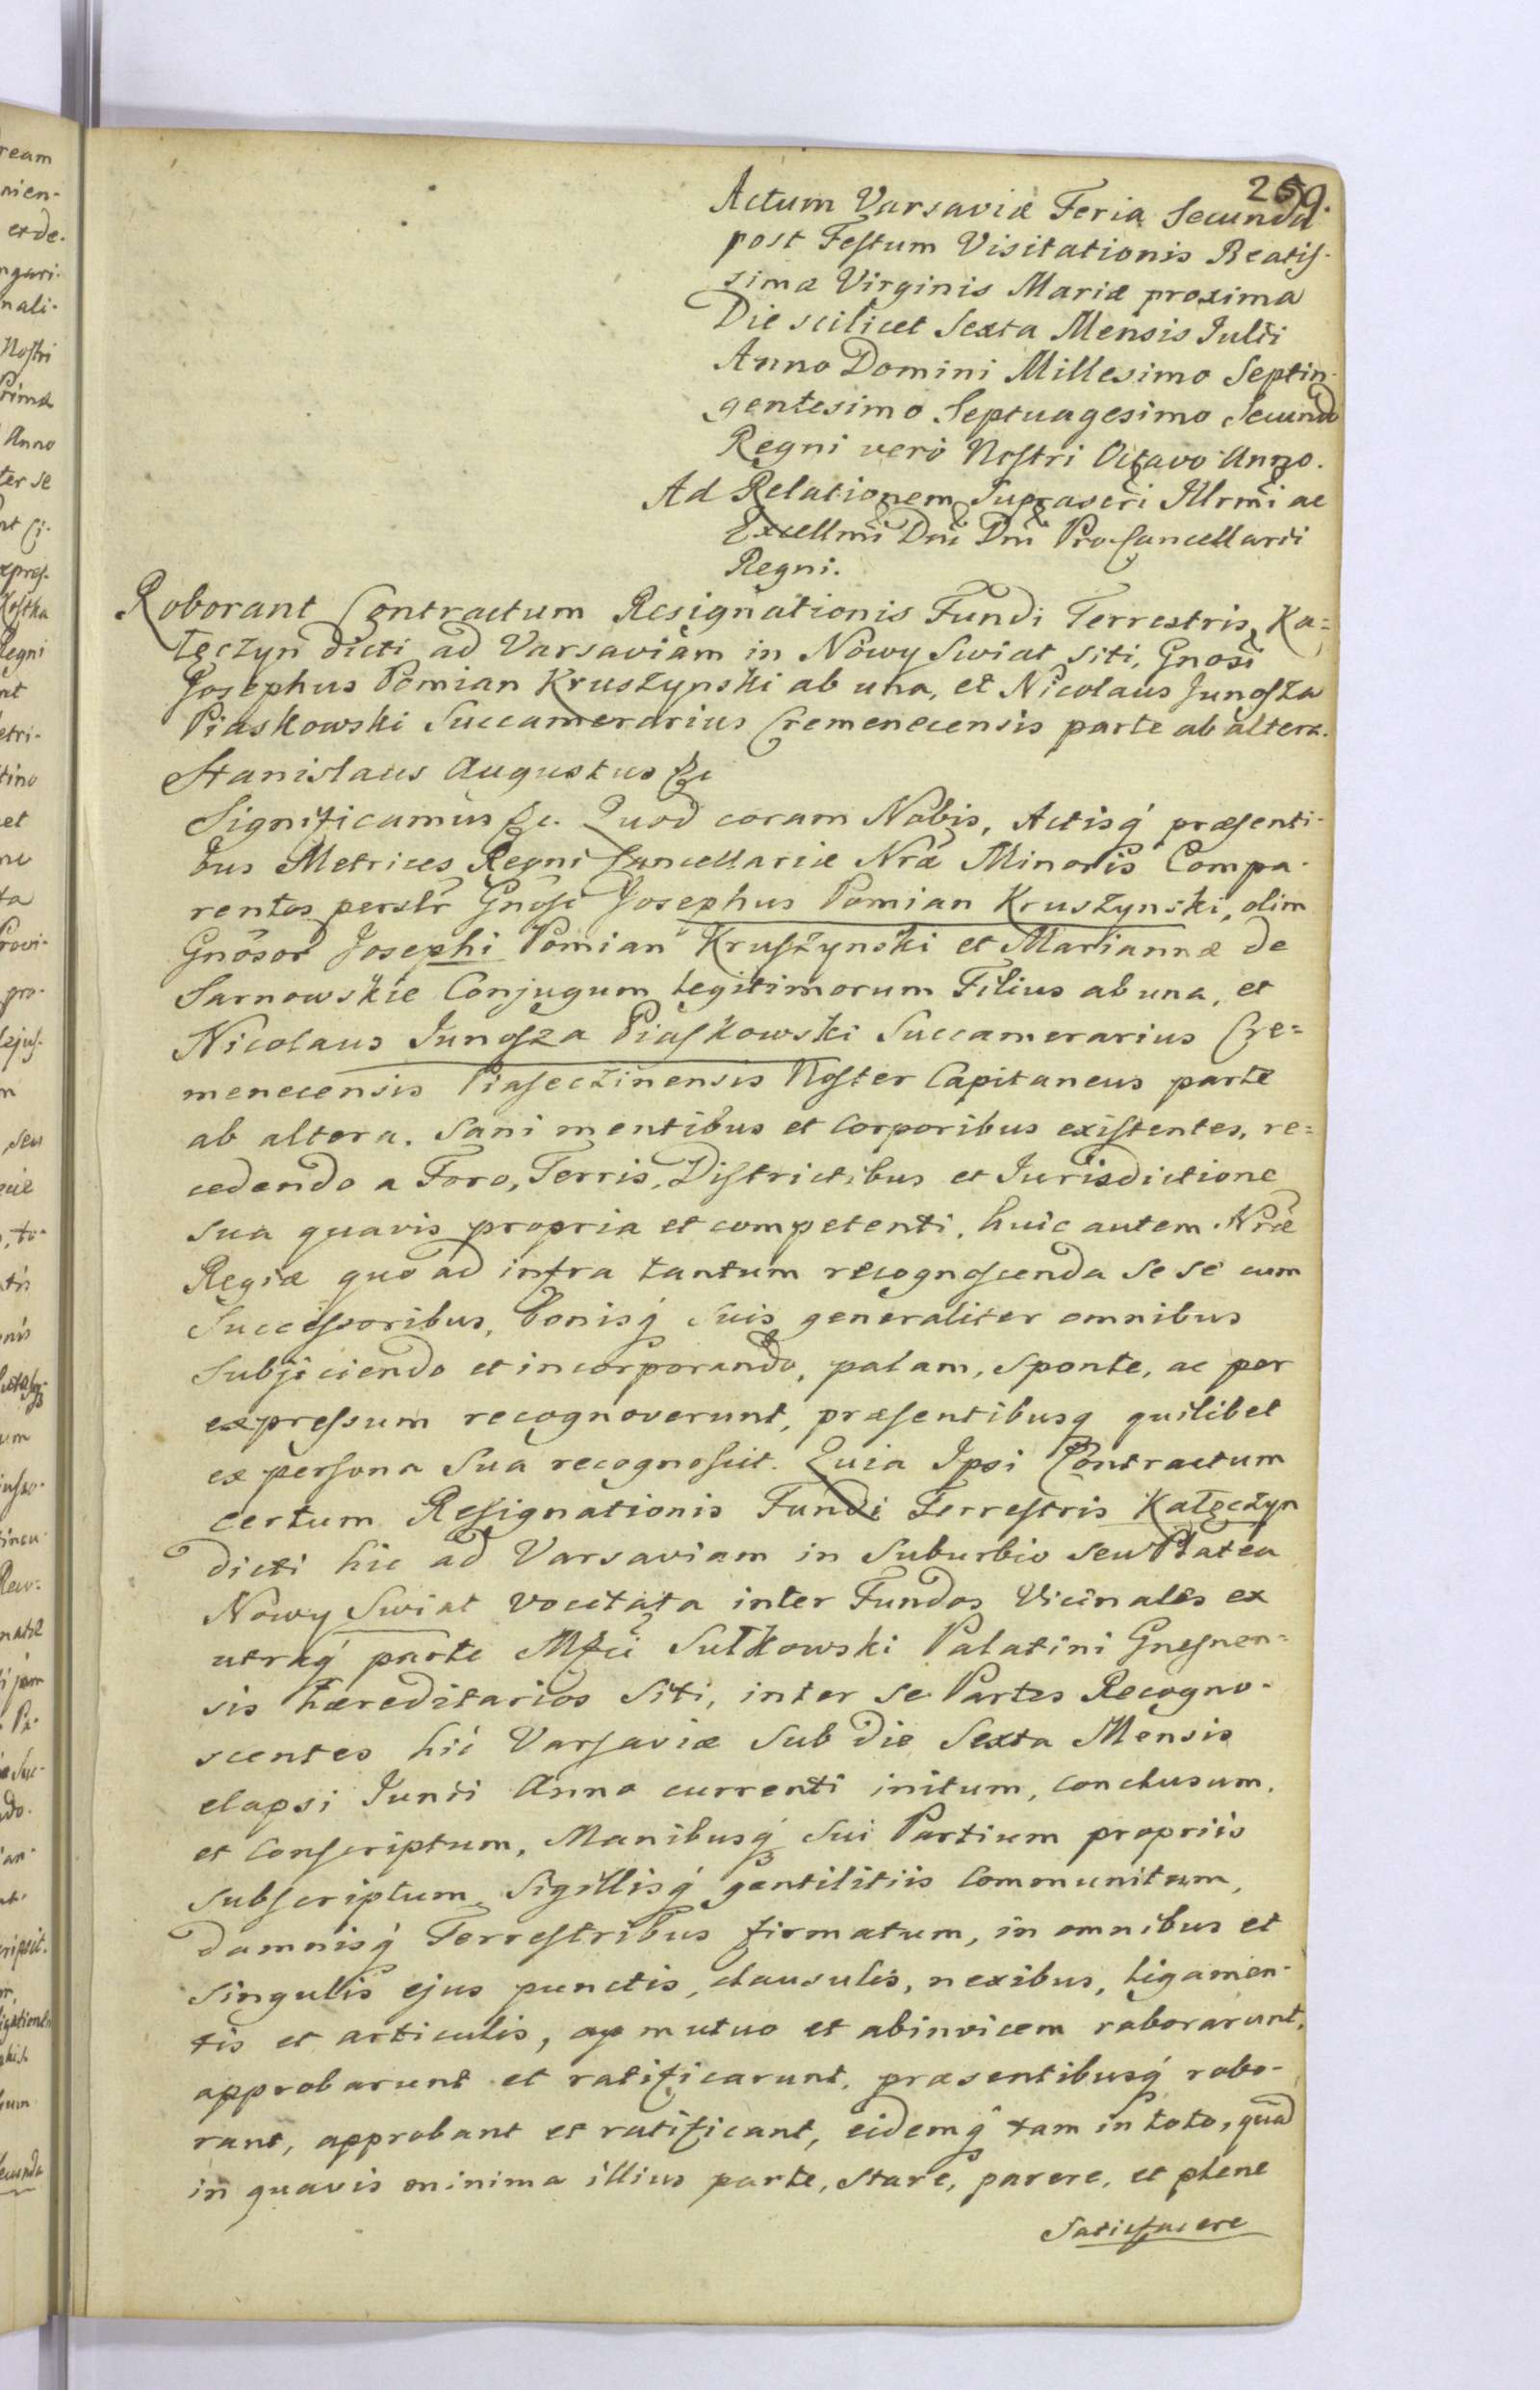 259.
Actum Varsaviæ Feria Secunda
post Festum Visitationis Beatis-
simæ Virginis Mariæ proxima
Die scilicet Sexta Mensis Julii
Anno Domini Millesimo Septin-
gentesimo Septuagesimo Secundo
Regni verò Nostri Octavo Anno.
Ad Relationem Suprascri Illrmi ac
Excellmi Dni Dni Pro-Cancellarii
Regni.
Roborant Contractum Resignationis Fundi Terrestris, Ka=
łęczyn dicti ad Varsaviam in Nowy Swiat siti, Gnosi
Josephus Pomian Kruszynski ab una, et Nicolaus Junosza
Piaskowski Succamerarius Cremenecensis parte ab altera.
Stanislaus Augustus &c
Significamus &c. Quod coram Nobis, Actisq́ præsenti-
bus Metrices Regni Cancellariæ Nræ Minoris Compa-
rentes persltr Gnosi Josephus Pomian Kruszynski, olim
Gnosor Josephi Pomian Kruszynski et Mariannæ de
Sarnowskie Conjugum legitimorum Filius ab una, et
Nicolaus Junosza Piaskowski Succamerarius Cre=
menecensis Piaseczinensis Noster Capitaneus parte
ab altera. Sani mentibus et Corporibus existentes, re=
cedendo a Foro, Terris, Districtibus et Jurisdictione
sua quavis propria et competenti, huic autem Nræ
Regiæ quo ad infra tantum recognoscenda se se cum
Successoribus, bonisq́ suis generaliter omnibus
subjiciendo et incorporando, palam, sponte, ac per
expressum recognoverunt, præsentibusq quilibet
ex persona sua recognoscit. Quia Ipsi Contractum
certum Resignationis Fundi Terrestris Kałęczyn
dicti hic ad Varsaviam in Suburbio seu Platea
Nowy Swiat vocitata inter Fundos Vicinales ex
utraq́ parte Mfci Sułkowski Palatini Gnesnen=
sis hæreditarios siti, inter se Partes Recogno-
scentes hic Varsaviæ sub die Sexta Mensis
elapsi Junii Anno currenti initum, conclusum,
et Conscriptum, Manibusq́ sui Partium propriis
subscriptum, Sigillisq́ gentilitiis Communitum,
damnisq́ Terrestribus firmatum, in omnibus et
singulis ejus punctis, clausulis, nexibus, ligamen-
tis et articulis, ap mutuo et abinvicem roborarunt,
approbarunt et ratificarunt, præsentibusq́ robo-
rant, approbant et ratificant, eidemq́ tam in toto, quàm
in quavis minima illius parte, stare, parere, et plene
Satisfacere